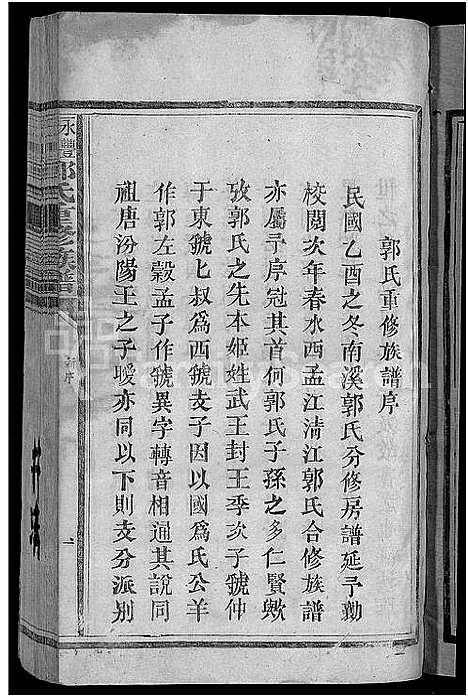 郭氏重修族譜序
民國乙酉之冬南溪郭氏分修房譜延予勷
校閱次年春水西孟江淸江郭氏合修族譜
亦屬予序冠其首何郭氏子孫之多仁賢歟
攷郭氏之先本姬姓武王封王季次子虢仲
于東虢匕叔爲西虢支子因以國爲氏公羊
作郭左穀孟子作虢異字轉音相通其說同
祖唐汾陽王之子曖亦同以下則支分派別
永豐郭氏重修族譜
序
一